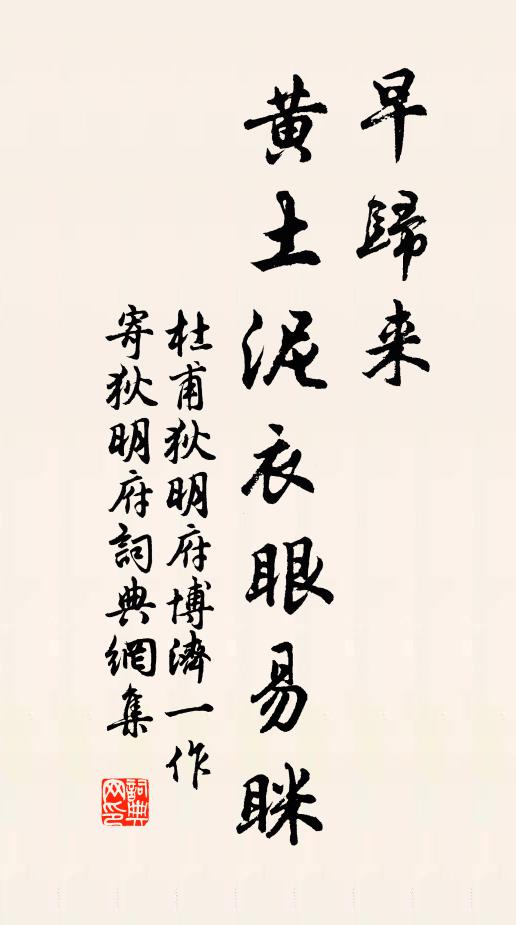 早歸来
黄土泥衣眼易眯
杜甫狄明府博濟一作
寄狄明府詞典網集
詞典
网印